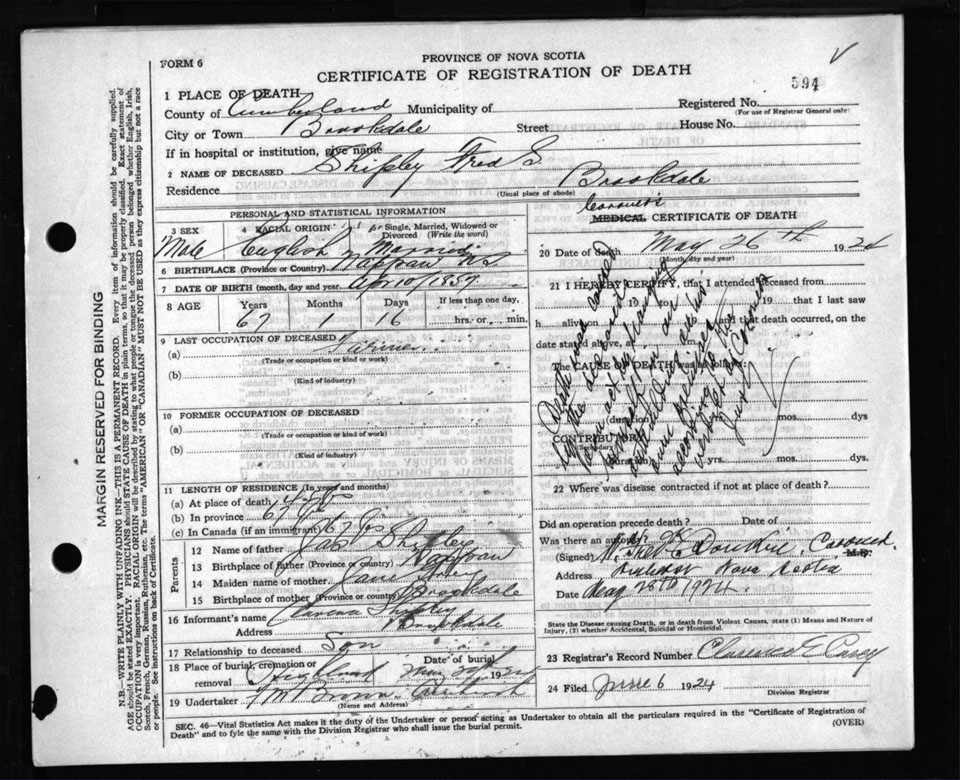 PROVINCE OF NOVA SCOTIA
FORM 6
CERTIFICATE OF REGISTRATION OF DEATH
594
1 PLACE OF DEATH
County of Cumberland Municipality of
Registered No.
(For use of Registrar General only)
City or Town Brookdale Street House No.
If in hospital or institution, give name
2 NAME OF DECEASED Shipley Fred S
Residence Brookdale
(Usual place of abode)
PERSONAL AND STATISTICAL INFORMATION
3 SEX
4 RACIAL ORIGIN
5 Single, Married, Widowed or Divorced (Write the word)
Male English Married
6 BIRTHPLACE (Province or Country) Nappan N.S
7 DATE OF BIRTH (month, day and year) Apr 10/1857
8 AGE Years Months Days If less than one day,
67 1 16 hrs. or min.
9 LAST OCCUPATION OF DECEASED
(a) Farmer
(Trade or occupation or kind of work)
(b)
(Kind of industry)
10 FORMER OCCUPATION OF DECEASED
(a)
(Trade or occupation or kind of work)
(b)
(Kind of industry)
11 LENGTH OF RESIDENCE (In years and months)
(a) At place of death
(b) In province 67 yrs
(c) In Canada (if an immigrant) 67 yrs
Parents
12 Name of father Shipley
13 Birthplace of father (Province or Country) Nappan
14 Maiden name of mother Jane
15 Birthplace of mother (Province or country) Brookdale
16 Informant's name Shipley
Address Brookdale
17 Relationship to deceased Son
18 Place of burial, cremation or removal Highland Date of burial 192
19 Undertaker Brown Amherst
(Name and Address)
Coroners
MEDICAL CERTIFICATE OF DEATH
20 Date of death May 26th 1924
(Month, day and year)
21 I HEREBY CERTIFY, that I attended deceased from
19 to 19 that I last saw
h alive on and that death occurred, on
date stated above, at m.
The CAUSE OF DEATH was as follows:
(duration) yrs. mos. dys
CONTRIBUTORY
(Secondary)
(duration) yrs. mos. dys
Death was caused
by the deceased
own act by hanging
himself in his
own building
according to the
verdict of Coroners
Jury
22 Where was disease contracted if not at place of death?
Did an operation precede death? Date of
Was there an autopsy?
(Signed) Coroner M.D.
Address Amherst Nova Scotia
Date May 28th 1924.
State the Disease causing Death, or in death from Violent Causes, state (1) Means and Nature of Injury, (2) whether Accidental, Suicidal or Homicidal.
23 Registrar's Record Number Clarence E Casey
24 Filed June 6 1924
Division Registrar
SEC. 46—Vital Statistics Act makes it the duty of the Undertaker or person acting as Undertaker to obtain all the particulars required in the "Certificate of Registration of
Death" and to fyle the same with the Division Registrar who shall issue the burial permit. (OVER)
MARGIN RESERVED FOR BINDING
N.B.—WRITE PLAINLY WITH UNFADING INK—THIS IS A PERMANENT RECORD. Every item of information should be carefully supplied.
AGE should be stated EXACTLY. PHYSICIANS should STATE CAUSE OF DEATH in plain terms, so that it may be properly classified. Exact statement of
OCCUPATION is very important. RACIAL ORIGIN will be described by stating to what people or tongue the deceased person belonged whether English, Irish,
Scotch, French, German, Russian, Ruthenian, etc. The terms "AMERICAN" OR "CANADIAN" MUST NOT BE USED as they express citizenship but not a race
or people. See instructions on back of Certificate.